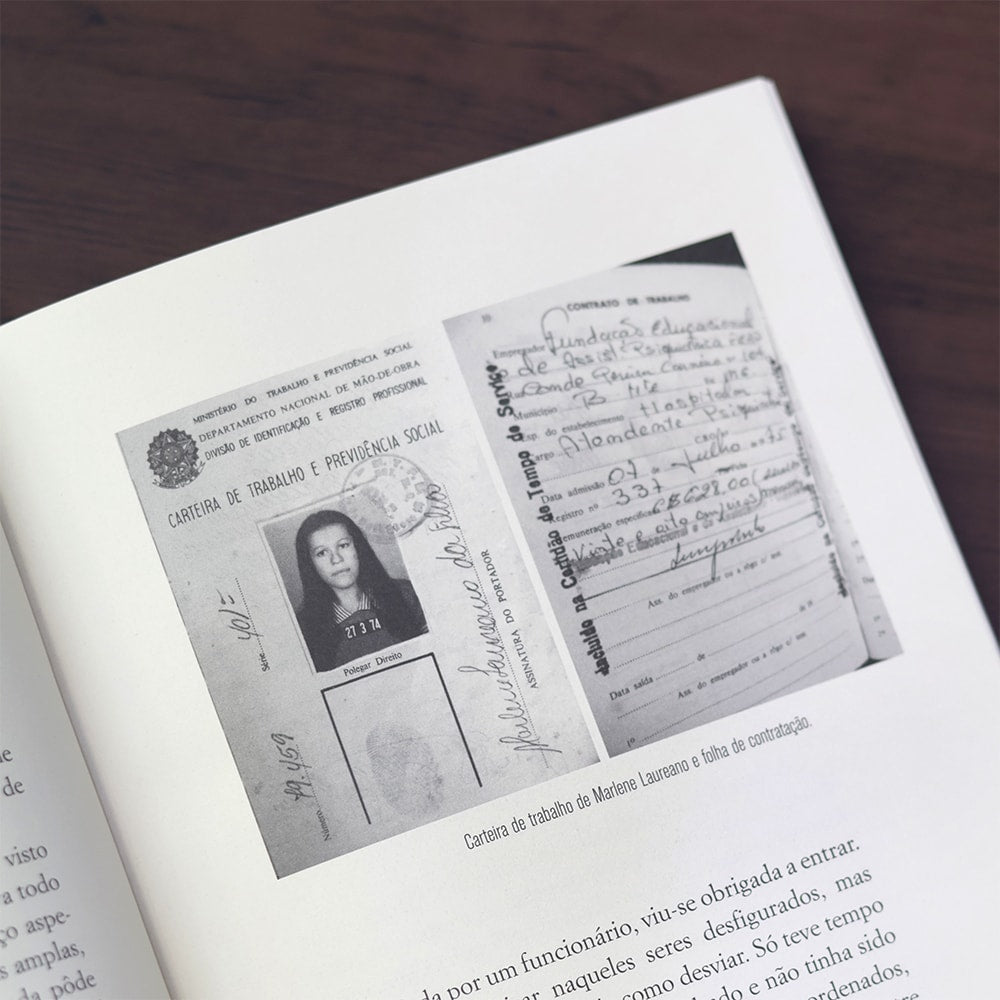 MINISTÉRIO DO TRABALHO E PREVIDÊNCIA SOCIAL
DEPARTAMENTO NACIONAL DE MÃO-DE-OBRA
DIVISÃO DE IDENTIFICAÇÃO E REGISTRO PROFISSIONAL
CARTEIRA DE TRABALHO E PREVIDÊNCIA SOCIAL
27 3 74
Polegar Direito
Série 401=
Número 49.459
Marlene Laureano da
ASSINATURA DO PORTADOR
10
CONTRATO DE TRABALHO
Empregador Fundação Educacional
de Assist Psiquiátrica
Rua Conde Pereira Carneiro nº
Município B. Hte
Esp. do estabelecimento Hospitalar
Cargo Atendente Psiquiat
Data admissão 07 de Julho
Registro nº 337
Remuneração especificada
628.00
Vinte e oito cruzeiros
Educacional
Ass. do empregador ou a rôgo c/ test.
de
Data saída de
Ass. do empregador ou a rôgo c/ test.
1º
Incluído na Certidão de Tempo de Serviço
Carteira de trabalho de Marlene Laureano e folha de contratação.
de
visto
a todo
ço aspe-
s amplas,
da pôde
da por um funcionário, viu-se obrigada a entrar.
naqueles seres desfigurados, mas
como desviar. Só teve tempo
e não tinha sido
ordenados,